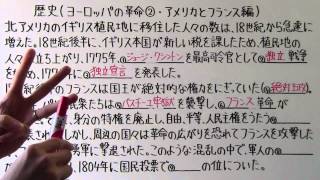 歴史(ヨーロッパの革命②・アメリカとフランス編)
北アメリカのイギリス植民地に移住した人々の数は、18世紀から急速に
増えた。18世紀後半に、イギリス本国が新しい税を課したため、植民地の
人々 立ち上がり、1775年、ジョージ・ワシントンを最高司令官として②独立戦争
をはじめ、177 年に 独立宣言 を発表した。
17世紀 のフランスは国王が絶対的な権力をにぎていた(絶対王政)。
民衆たちは バスチーユ牢獄 を襲撃し、⑥フランス革命が
て、身分の特権を廃止し、自由、平等、人民主権をうたう
された。しかし、周辺の国々は革命の広がりを恐れてフランスを攻撃した
勇軍に撃退された。このような混乱の中で、軍人の
、1804年に国民投票で の位についた。